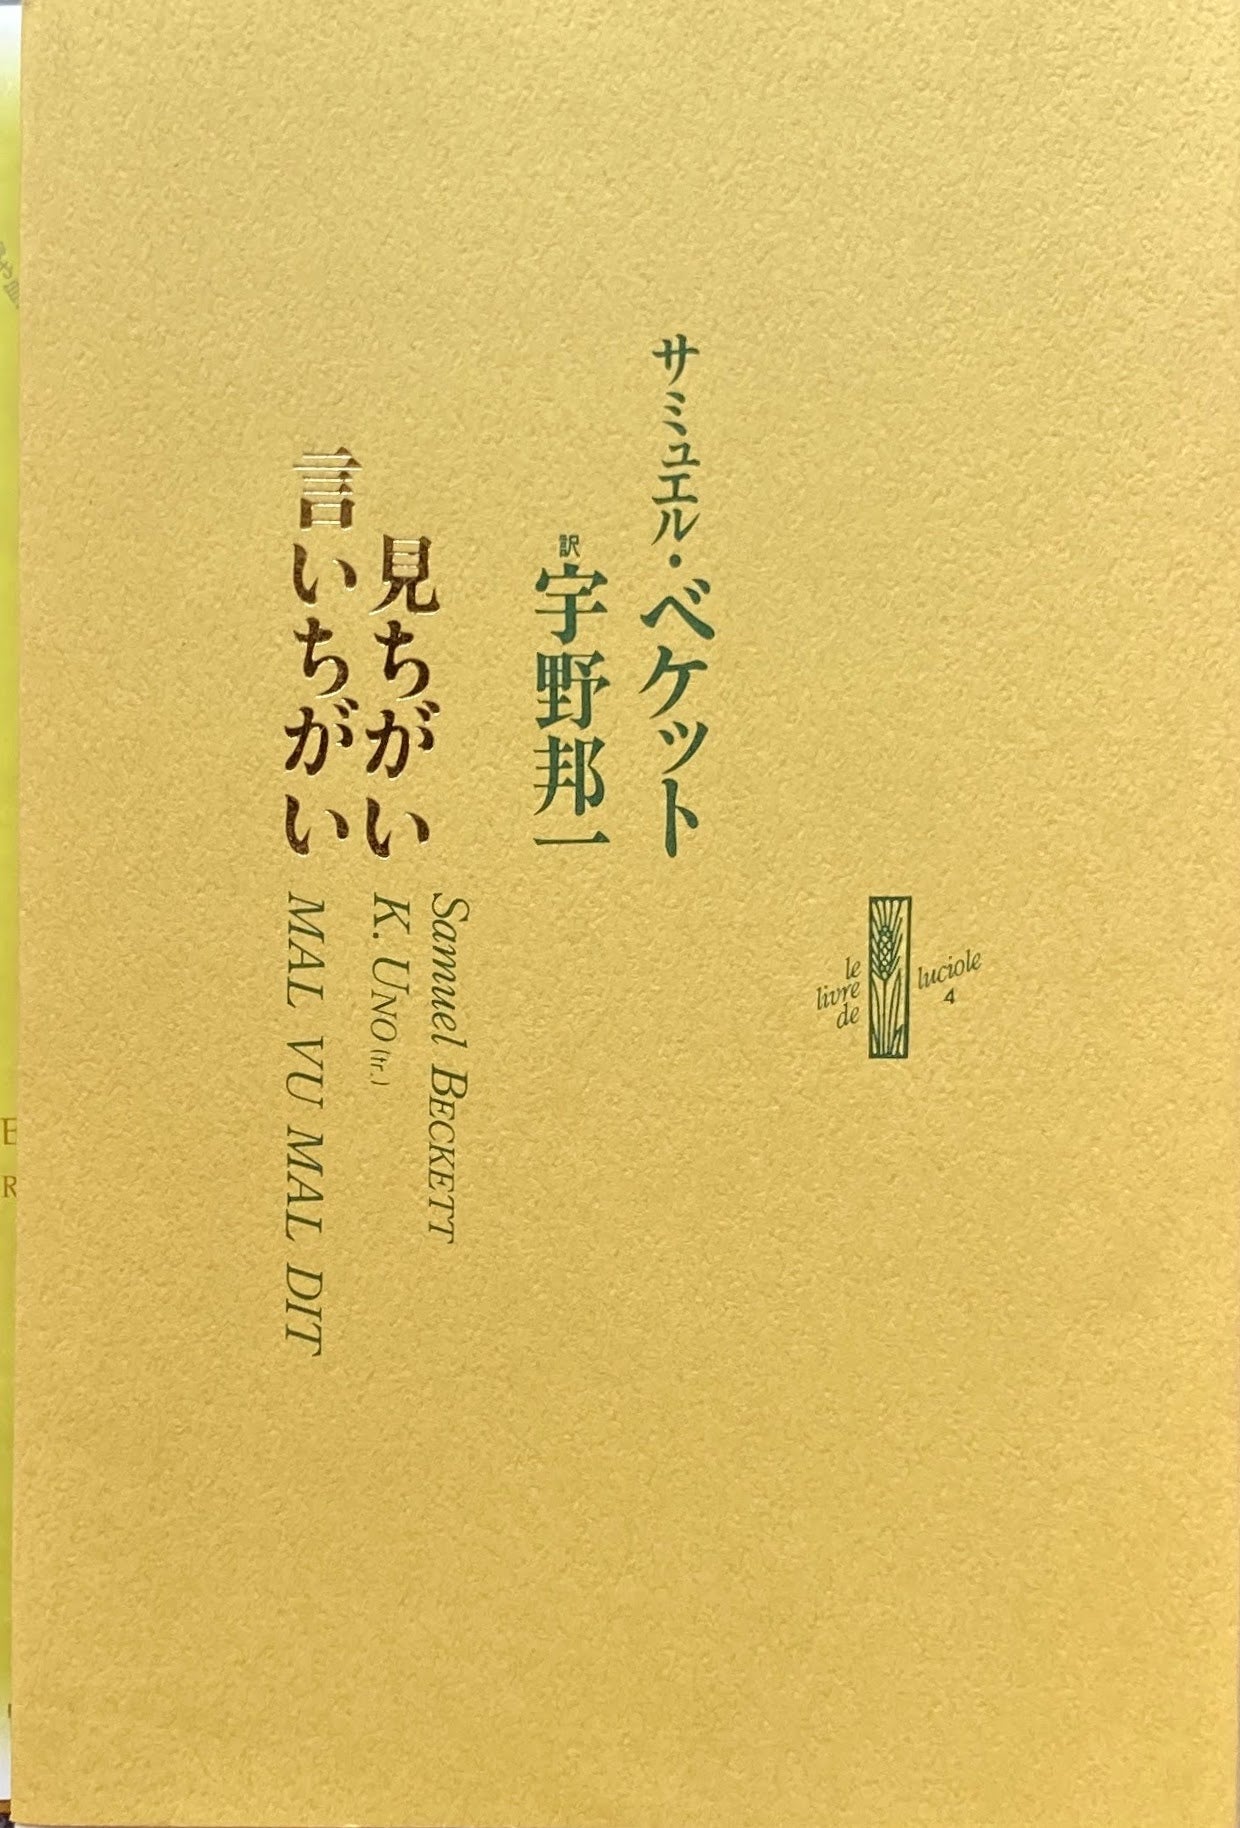 le
livre
de
luciole
4
サミュエル・ベケット
訳 宇野邦一
見ちがい
言いちがい
Samuel BECKETT
K. UNO (tr.)
MAL VU MAL DIT